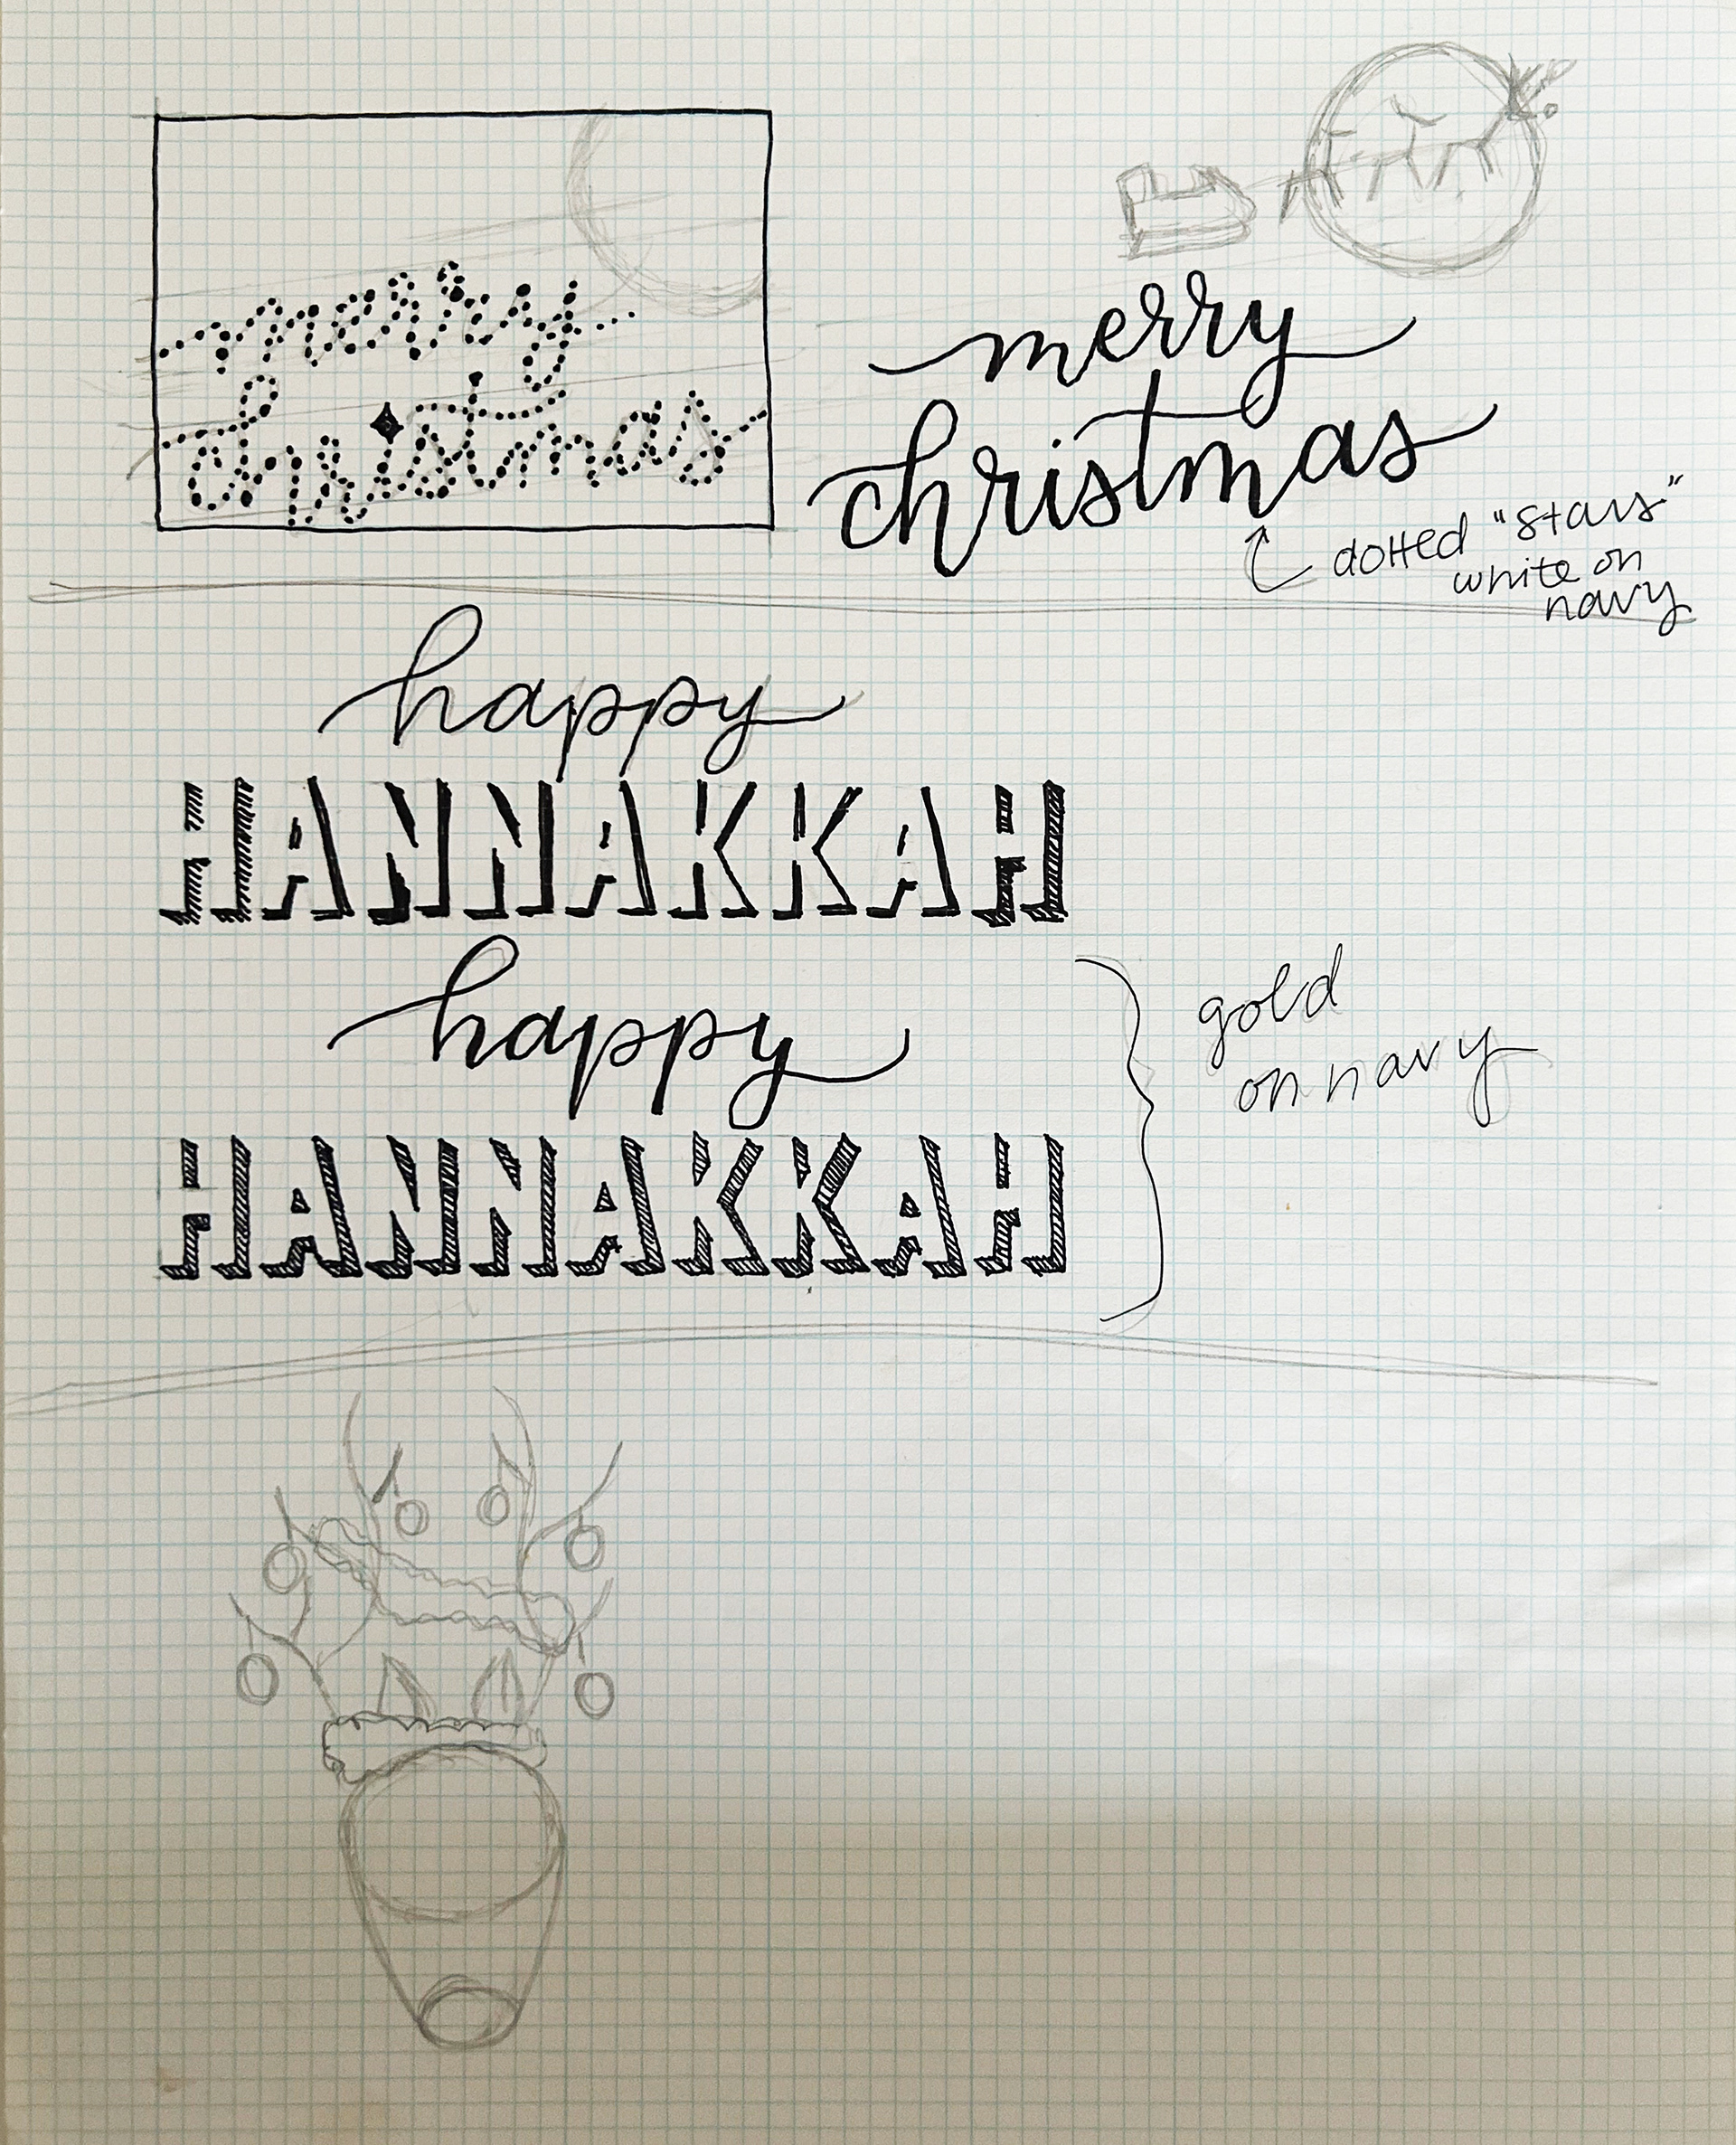 merry
christmas
merry
christmas
dotted "stars"
white on
navy
happy
HANNAKKAH
happy
HANNAKKAH
gold
on navy